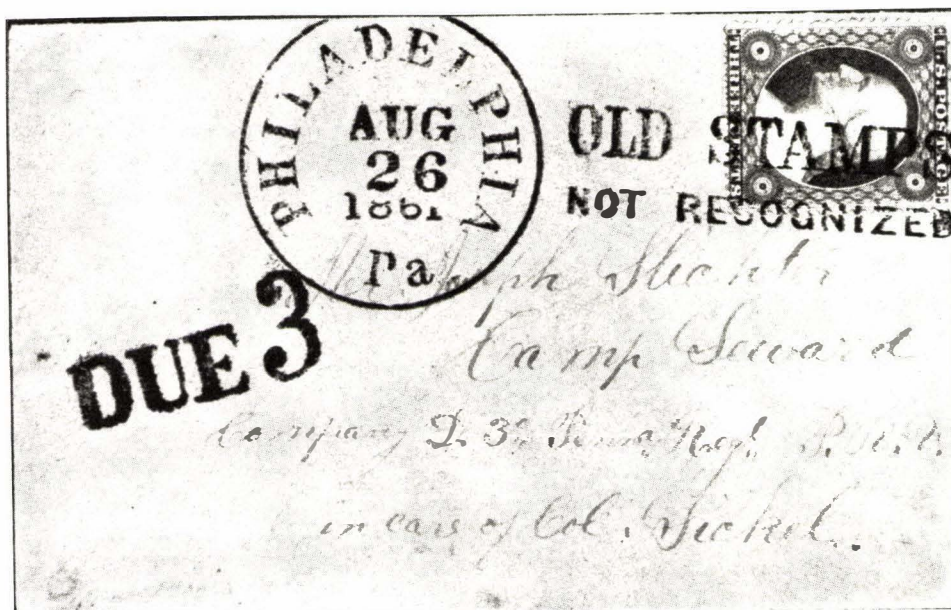 PHILADELPHIA
AUG
26
1861
Pa
OLD STAMPS
NOT RECOGNIZED
DUE 3
Camp Seward
Company D. 3d Penna Regt.
in care of Col. Sickel.